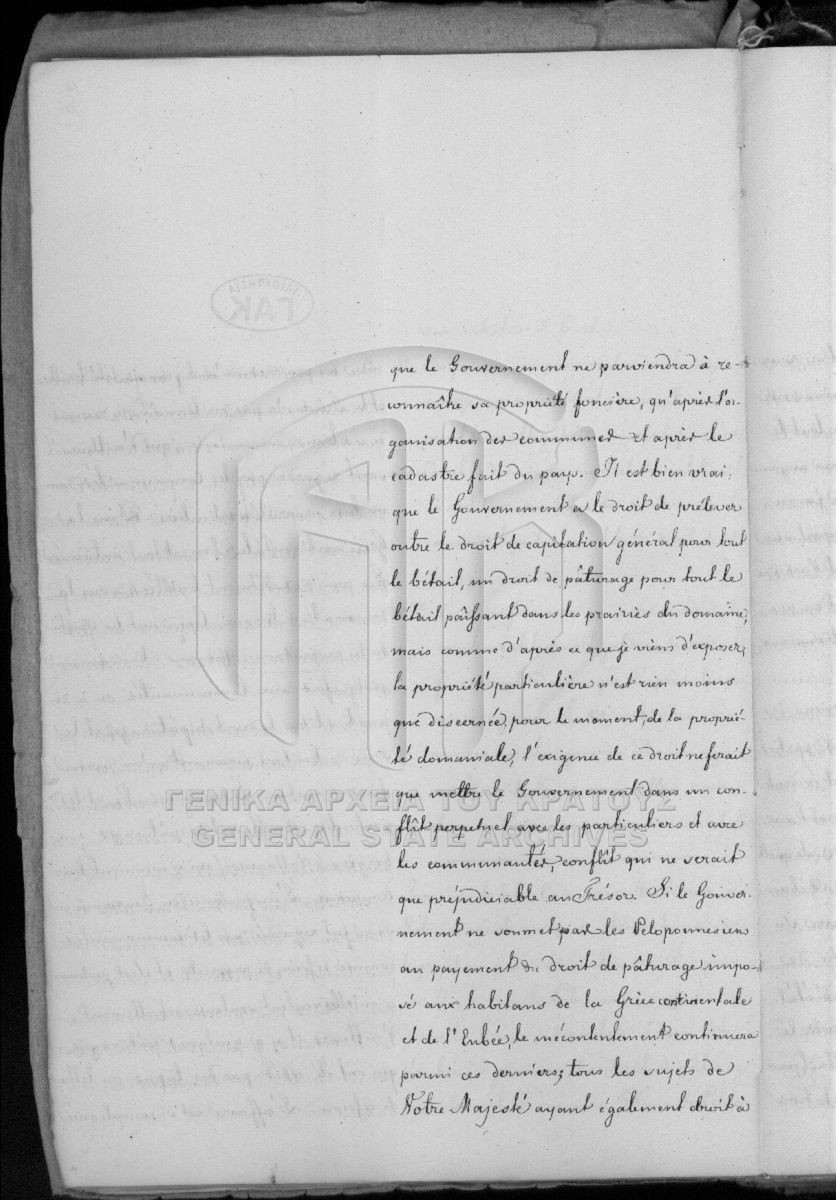 ΓΑΚ
que le Gouvernement ne parviendra à re-
connaître sa propriété foncière, qu'après l'or-
ganisation des communes et après le
cadastre fait du pays. Il est bien vrai,
que le Gouvernement a le droit de prélever
outre le droit de capitation général pour tout
le bétail, un droit de pâturage pour tout le
bétail paissant dans les prairies du domaine,
mais comme d'après ce que je viens d'exposer,
la propriété particulière n'est rien moins
que discernée, pour le moment, de la proprié-
té domaniale, l'exigence de ce droit ne ferait
que mettre le Gouvernement dans un con-
flit perpetuel avec les particuliers et avec
les communautés, conflit qui ne serait
que préjudiciable au Trésor. Si le Gouver-
nement ne soumet pas les Peloponnesiens
au payement du droit de pâturage impo-
sé aux habitans de la Grèce continentale
et de l'Eubée, le mécontentement continuera
parmi ces derniers; tous les sujets de
Votre Majesté ayant également droit à
ΓΕΝΙΚΑ ΑΡΧΕΙΑ ΤΟΥ ΚΡΑΤΟΥΣ
GENERAL STATE ARCHIVES